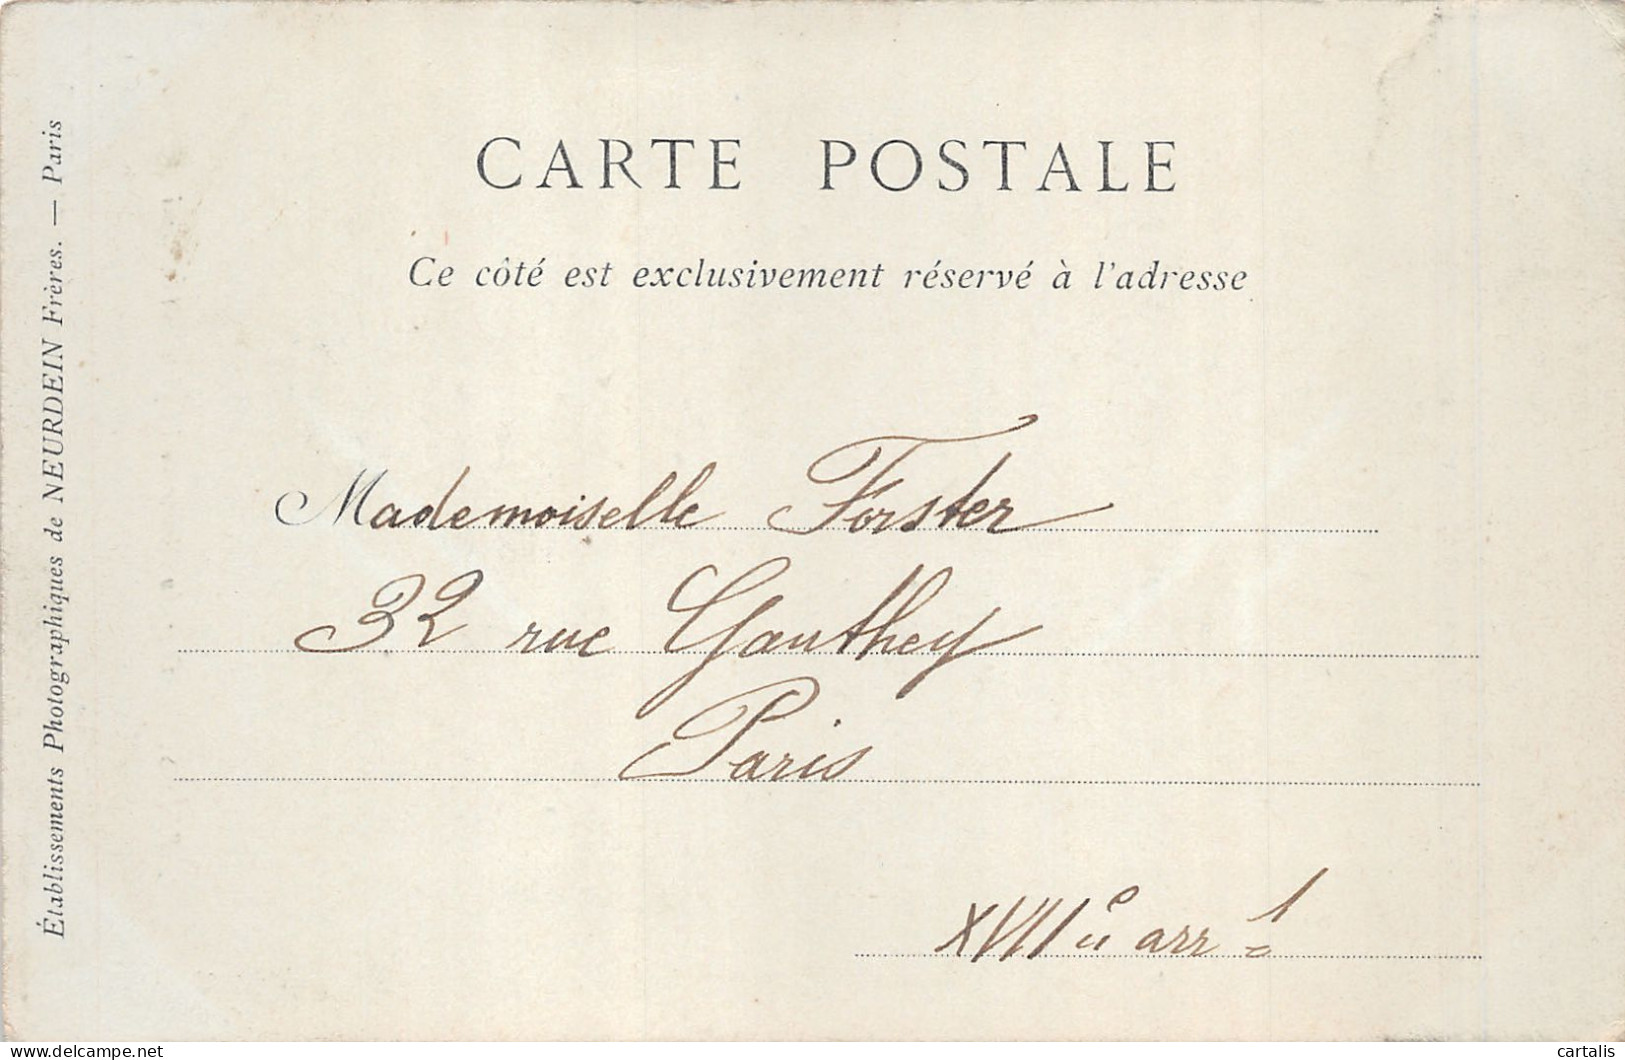 Établissements Photographiques de NEURDEIN Frères. — Paris
CARTE POSTALE
Ce côté est exclusivement réservé à l'adresse
Mademoiselle Forster
32 rue Gauthey
Paris
XVIIe arrt
www.delcampe.net
cartalis